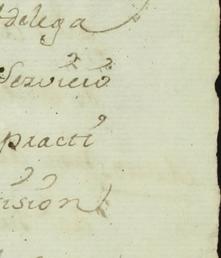 delega
Servicio
practi
ision